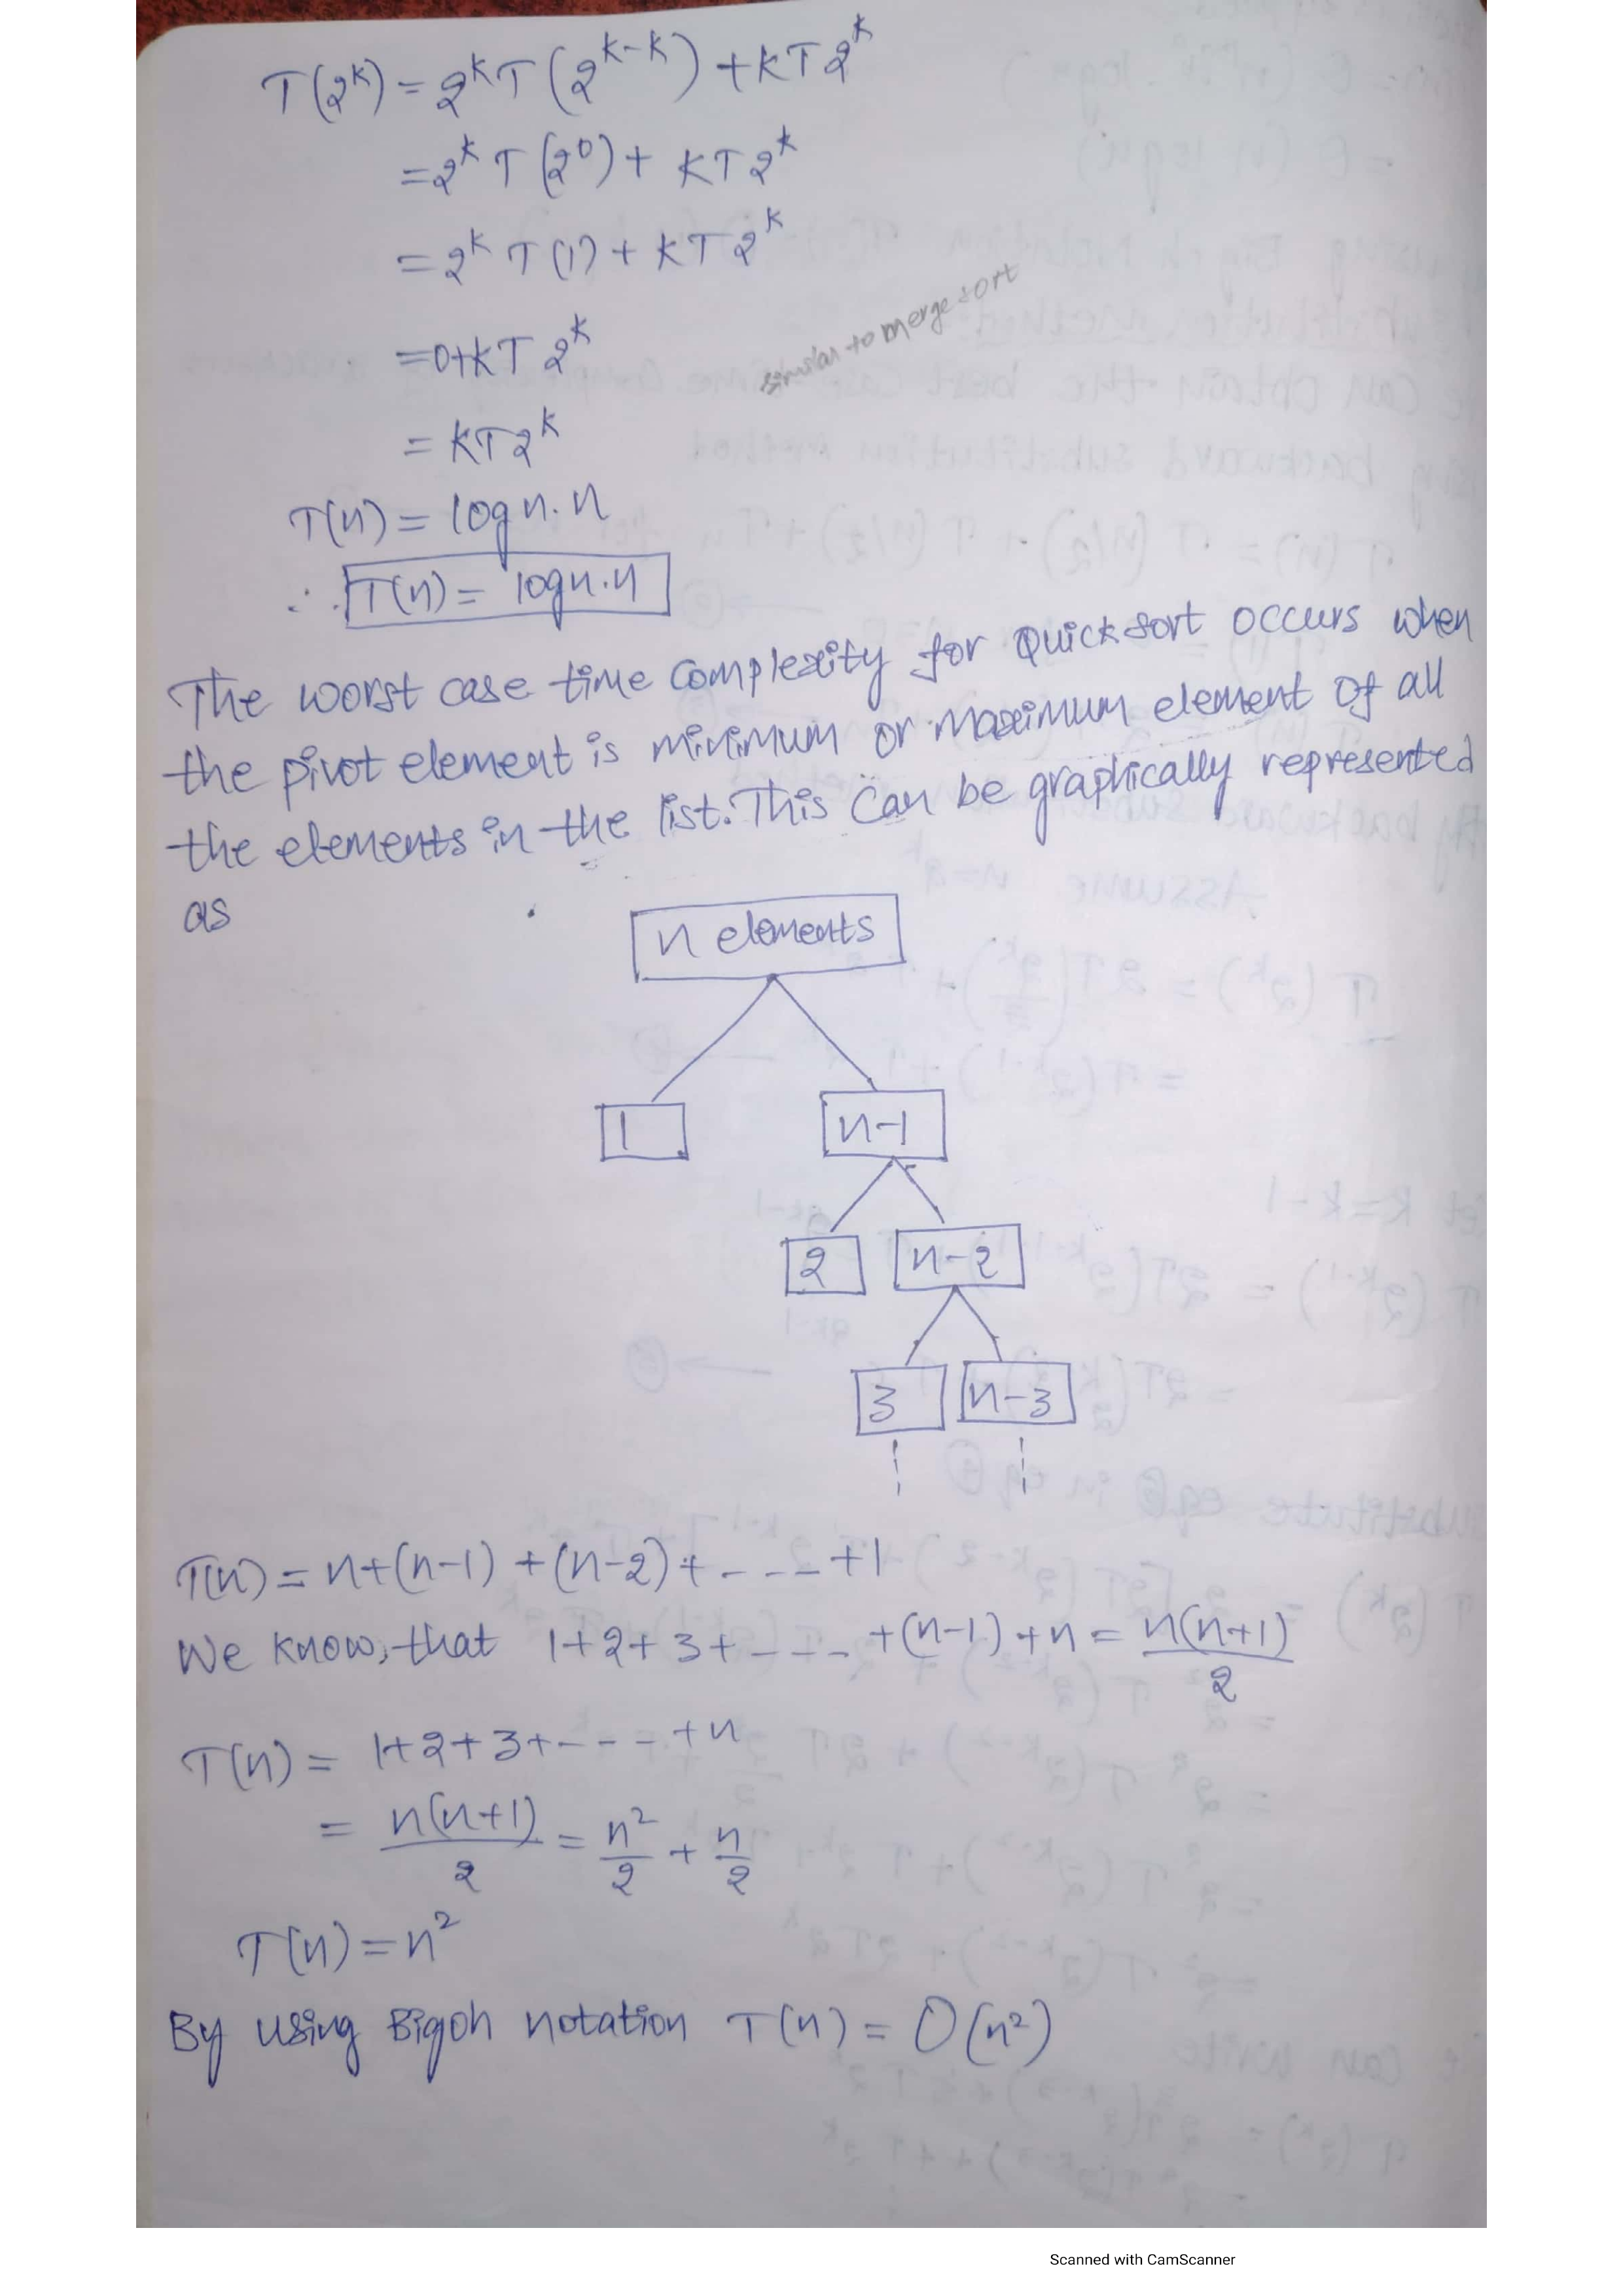 T(2^k) = 2^k T(2^{k-k}) + kT2^k
= 2^k T(2^0) + kT2^k
= 2^k T(1) + kT2^k
similar to merge sort
= 0+kT2^k
= kT2^k
T(n) = log n. n
∴ T(n) = log n. n
The worst case time complexity for Quick sort occurs when
the pivot element is minimum or maximum element of all
the elements in the list. This can be graphically represented
as
n elements
1 n-1
2 n-2
3 n-3
T(n) = n+(n-1) +(n-2)+ ---- +1
We know, that 1+2+3+---- +(n-1)+n = n(n+1)/2
T(n) = 1+2+3+---- +n
= n(n+1)/2 = n²/2 + n/2
T(n) = n²
By using Bigoh notation T(n) = O(n²)
Scanned with CamScanner